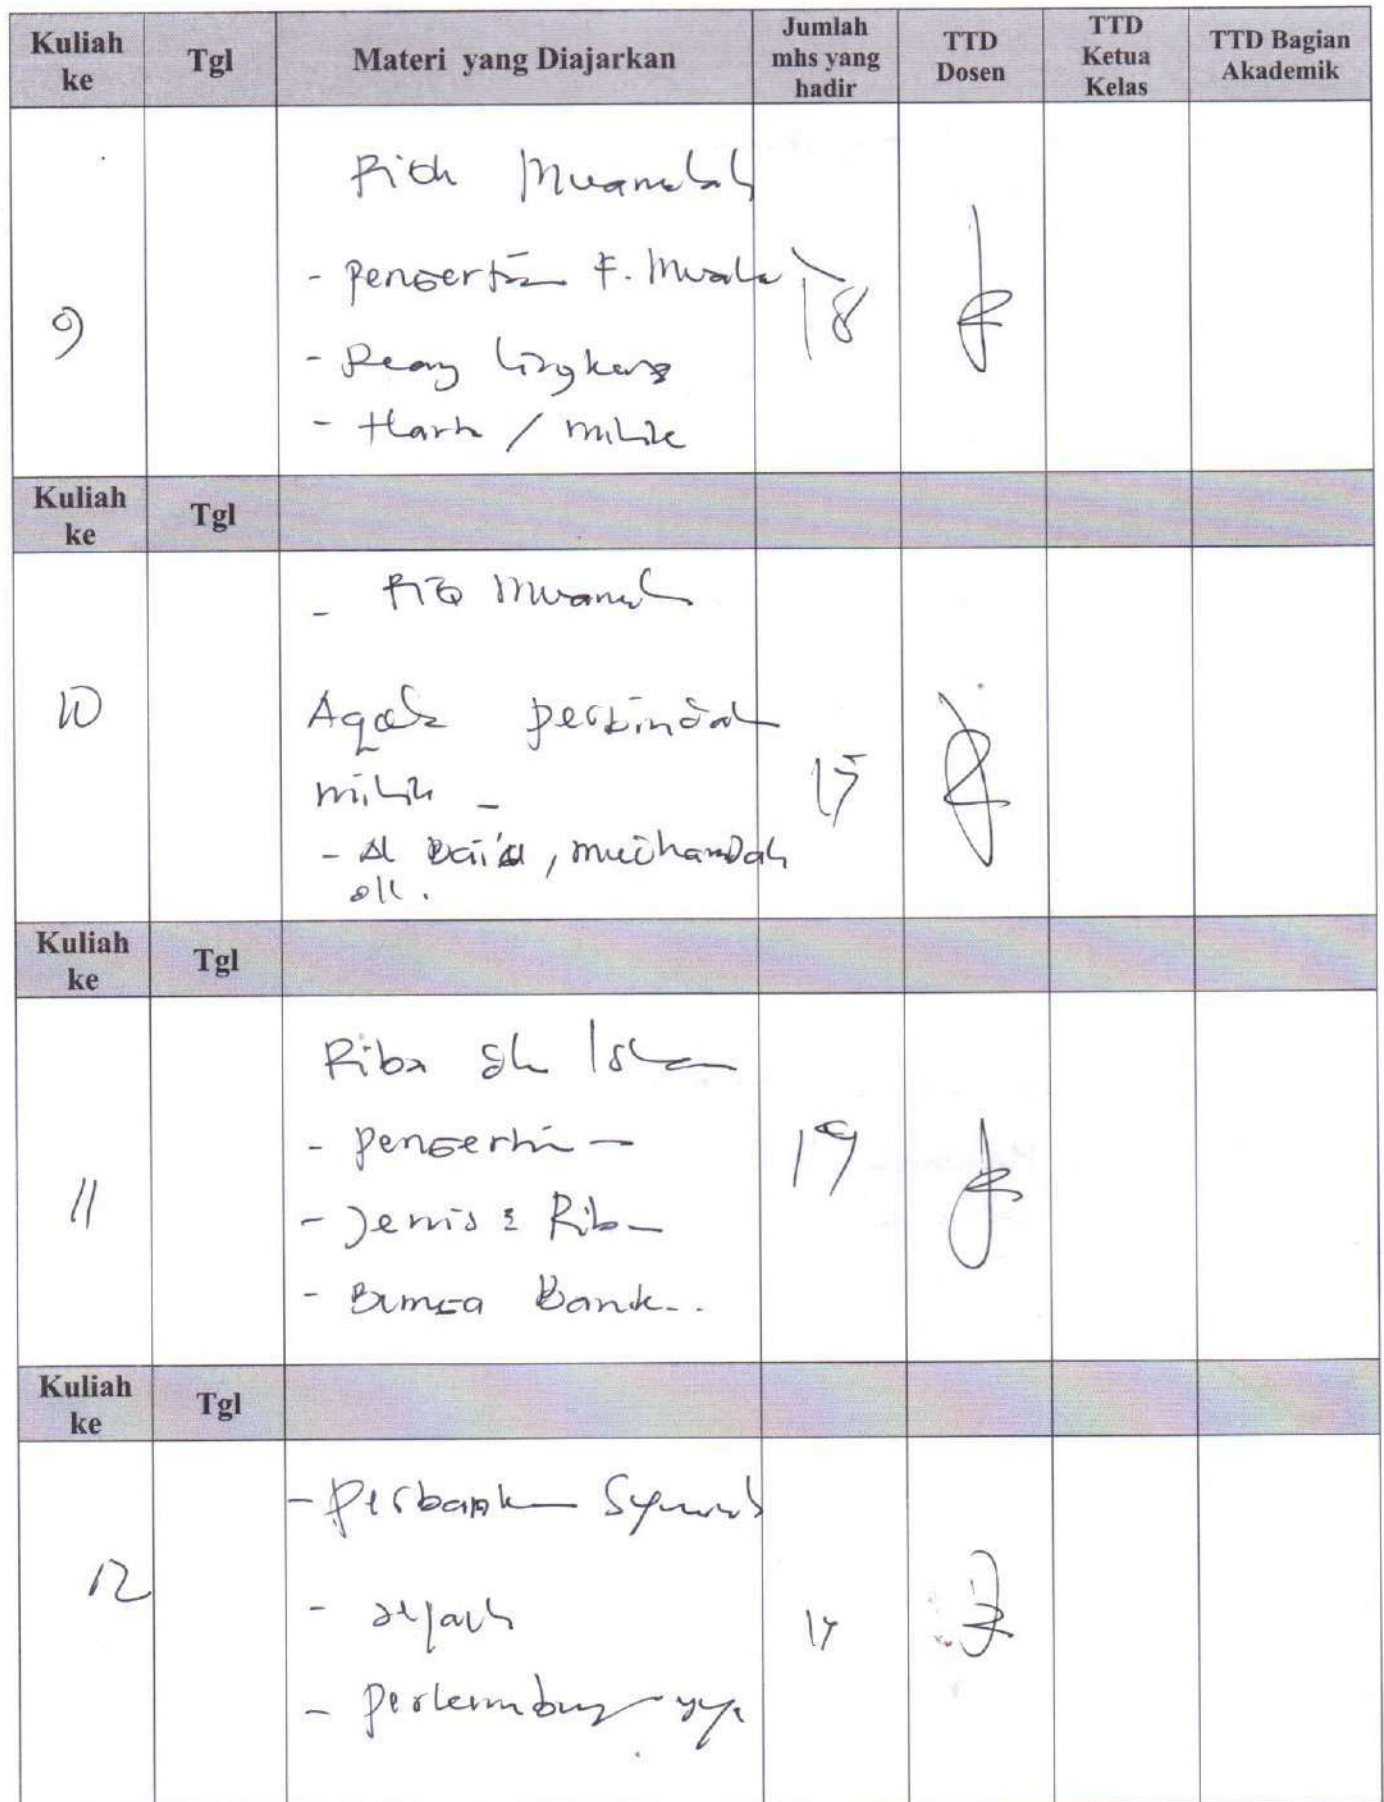 Kuliah ke Tgl Materi yang Diajarkan Jumlah mhs yang hadir TTD Dosen TTD Ketua Kelas TTD Bagian Akademik
Fiqh Muamalah
- Pengertian F. Muala
9 18
- Ruang lingkup
- Harta / milik
Kuliah ke Tgl
- Fiq Muamalah
10 Aqad perpindah
milik - 15
- Al Bai'a, mudharabah
dll.
Kuliah ke Tgl
Riba dlm Islam
- Pengertian 19
11 - Jenis2 Riba
- Bunga Bank..
Kuliah ke Tgl
- Perbankan Syariah
12
- sejarah
- Perkembangannya